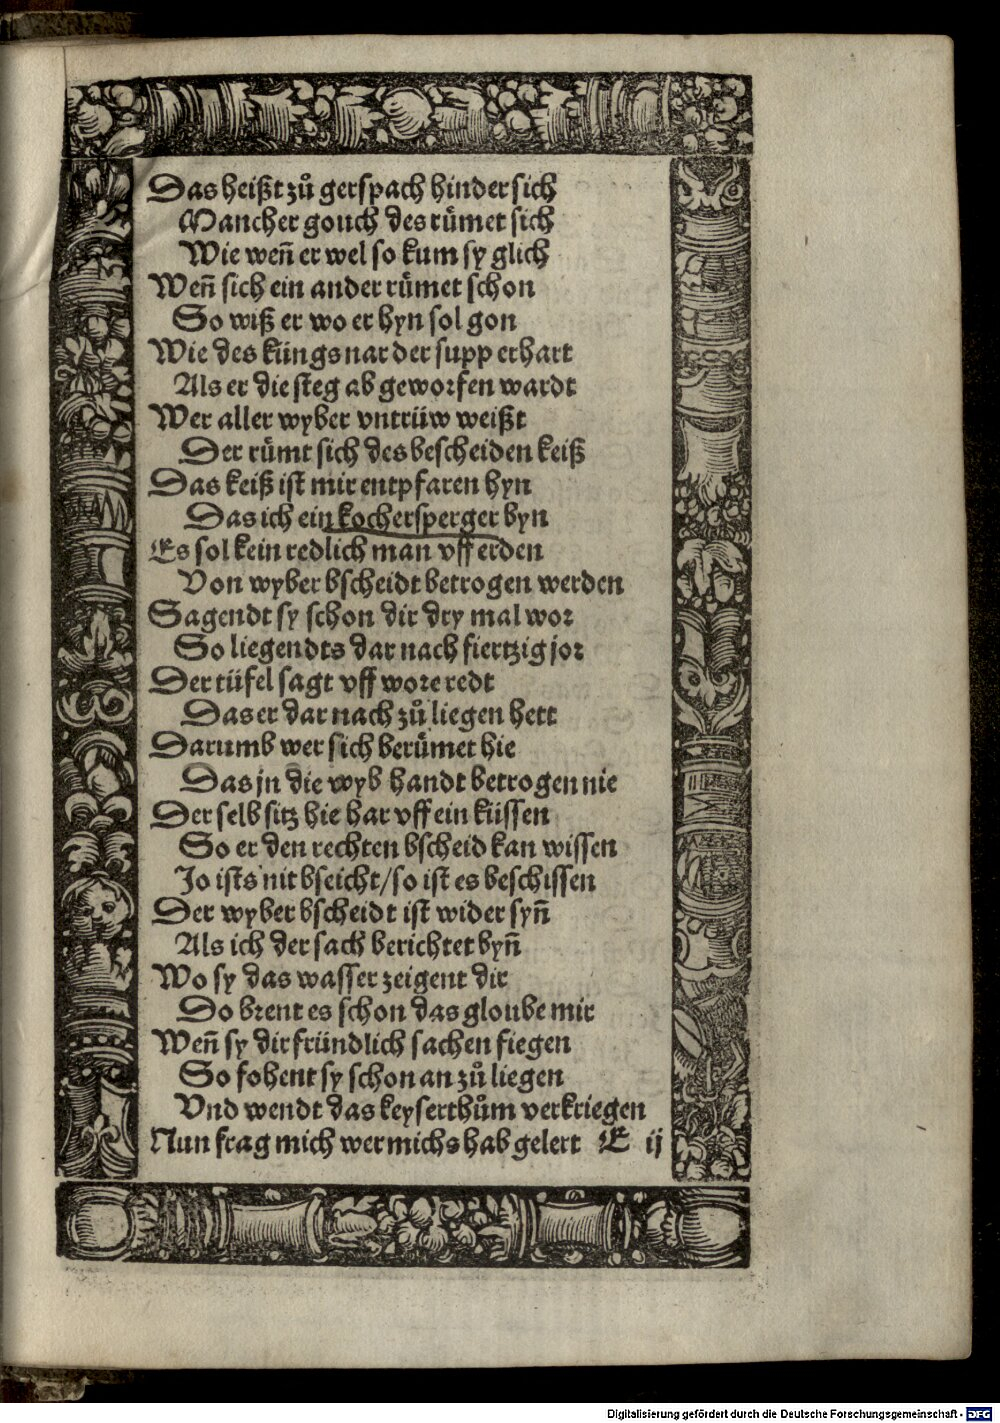 Das heißt zů gerspach hinder sich
Mancher gouch des rümet sich
Wie weñ er wel so kum sy glich
Weñ sich ein ander rümet schon
So wiß er wo er hyn sol gon
Wie des küngs nar der supp erhart
Als er die steg ab geworfen wardt
Wer aller wyber vntrüw weißt
Der rümt sich des bescheiden keiß
Das keiß ist mir entpfaren hyn
Das ich ein kochersperger byn
Es sol kein redlich man vff erden
Von wyber bscheidt betrogen werden
Sagendt sy schon dir dry mal wor
So liegendts dar nach fiertzig jor
Der tüfel sagt vff wore redt
Das er dar nach zů liegen hett
Darumb wer sich berümet hie
Das jn die wyb handt betrogen nie
Der selb sitz hie har vff ein küssen
So er den rechten bscheid kan wissen
Jo ists nit bseicht/so ist es beschissen
Der wyber bscheidt ist wider syñ
Als ich der sach berichtet byñ
Wo sy das wasser zeigent dir
Do brent es schon das gloube mir
Weñ sy dir fründlich sachen fiegen
So fohent sy schon an zů liegen
Vnd wendt das keyserthům verkriegen
Nun frag mich wer michs hab gelert E ij
Digitalisierung gefördert durch die Deutsche Forschungsgemeinschaft - DFG